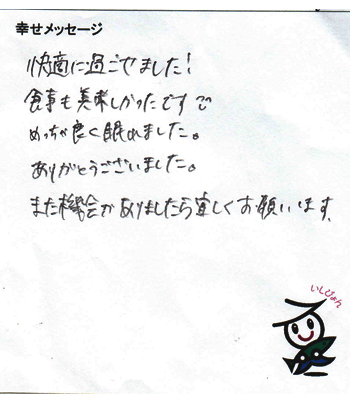 幸せメッセージ
快適に過ごせました!
食事も美味しかったです
めっちゃ良く眠れました。
ありがとうございました。
また機会がありましたら宜しくお願います。
いしぴょん